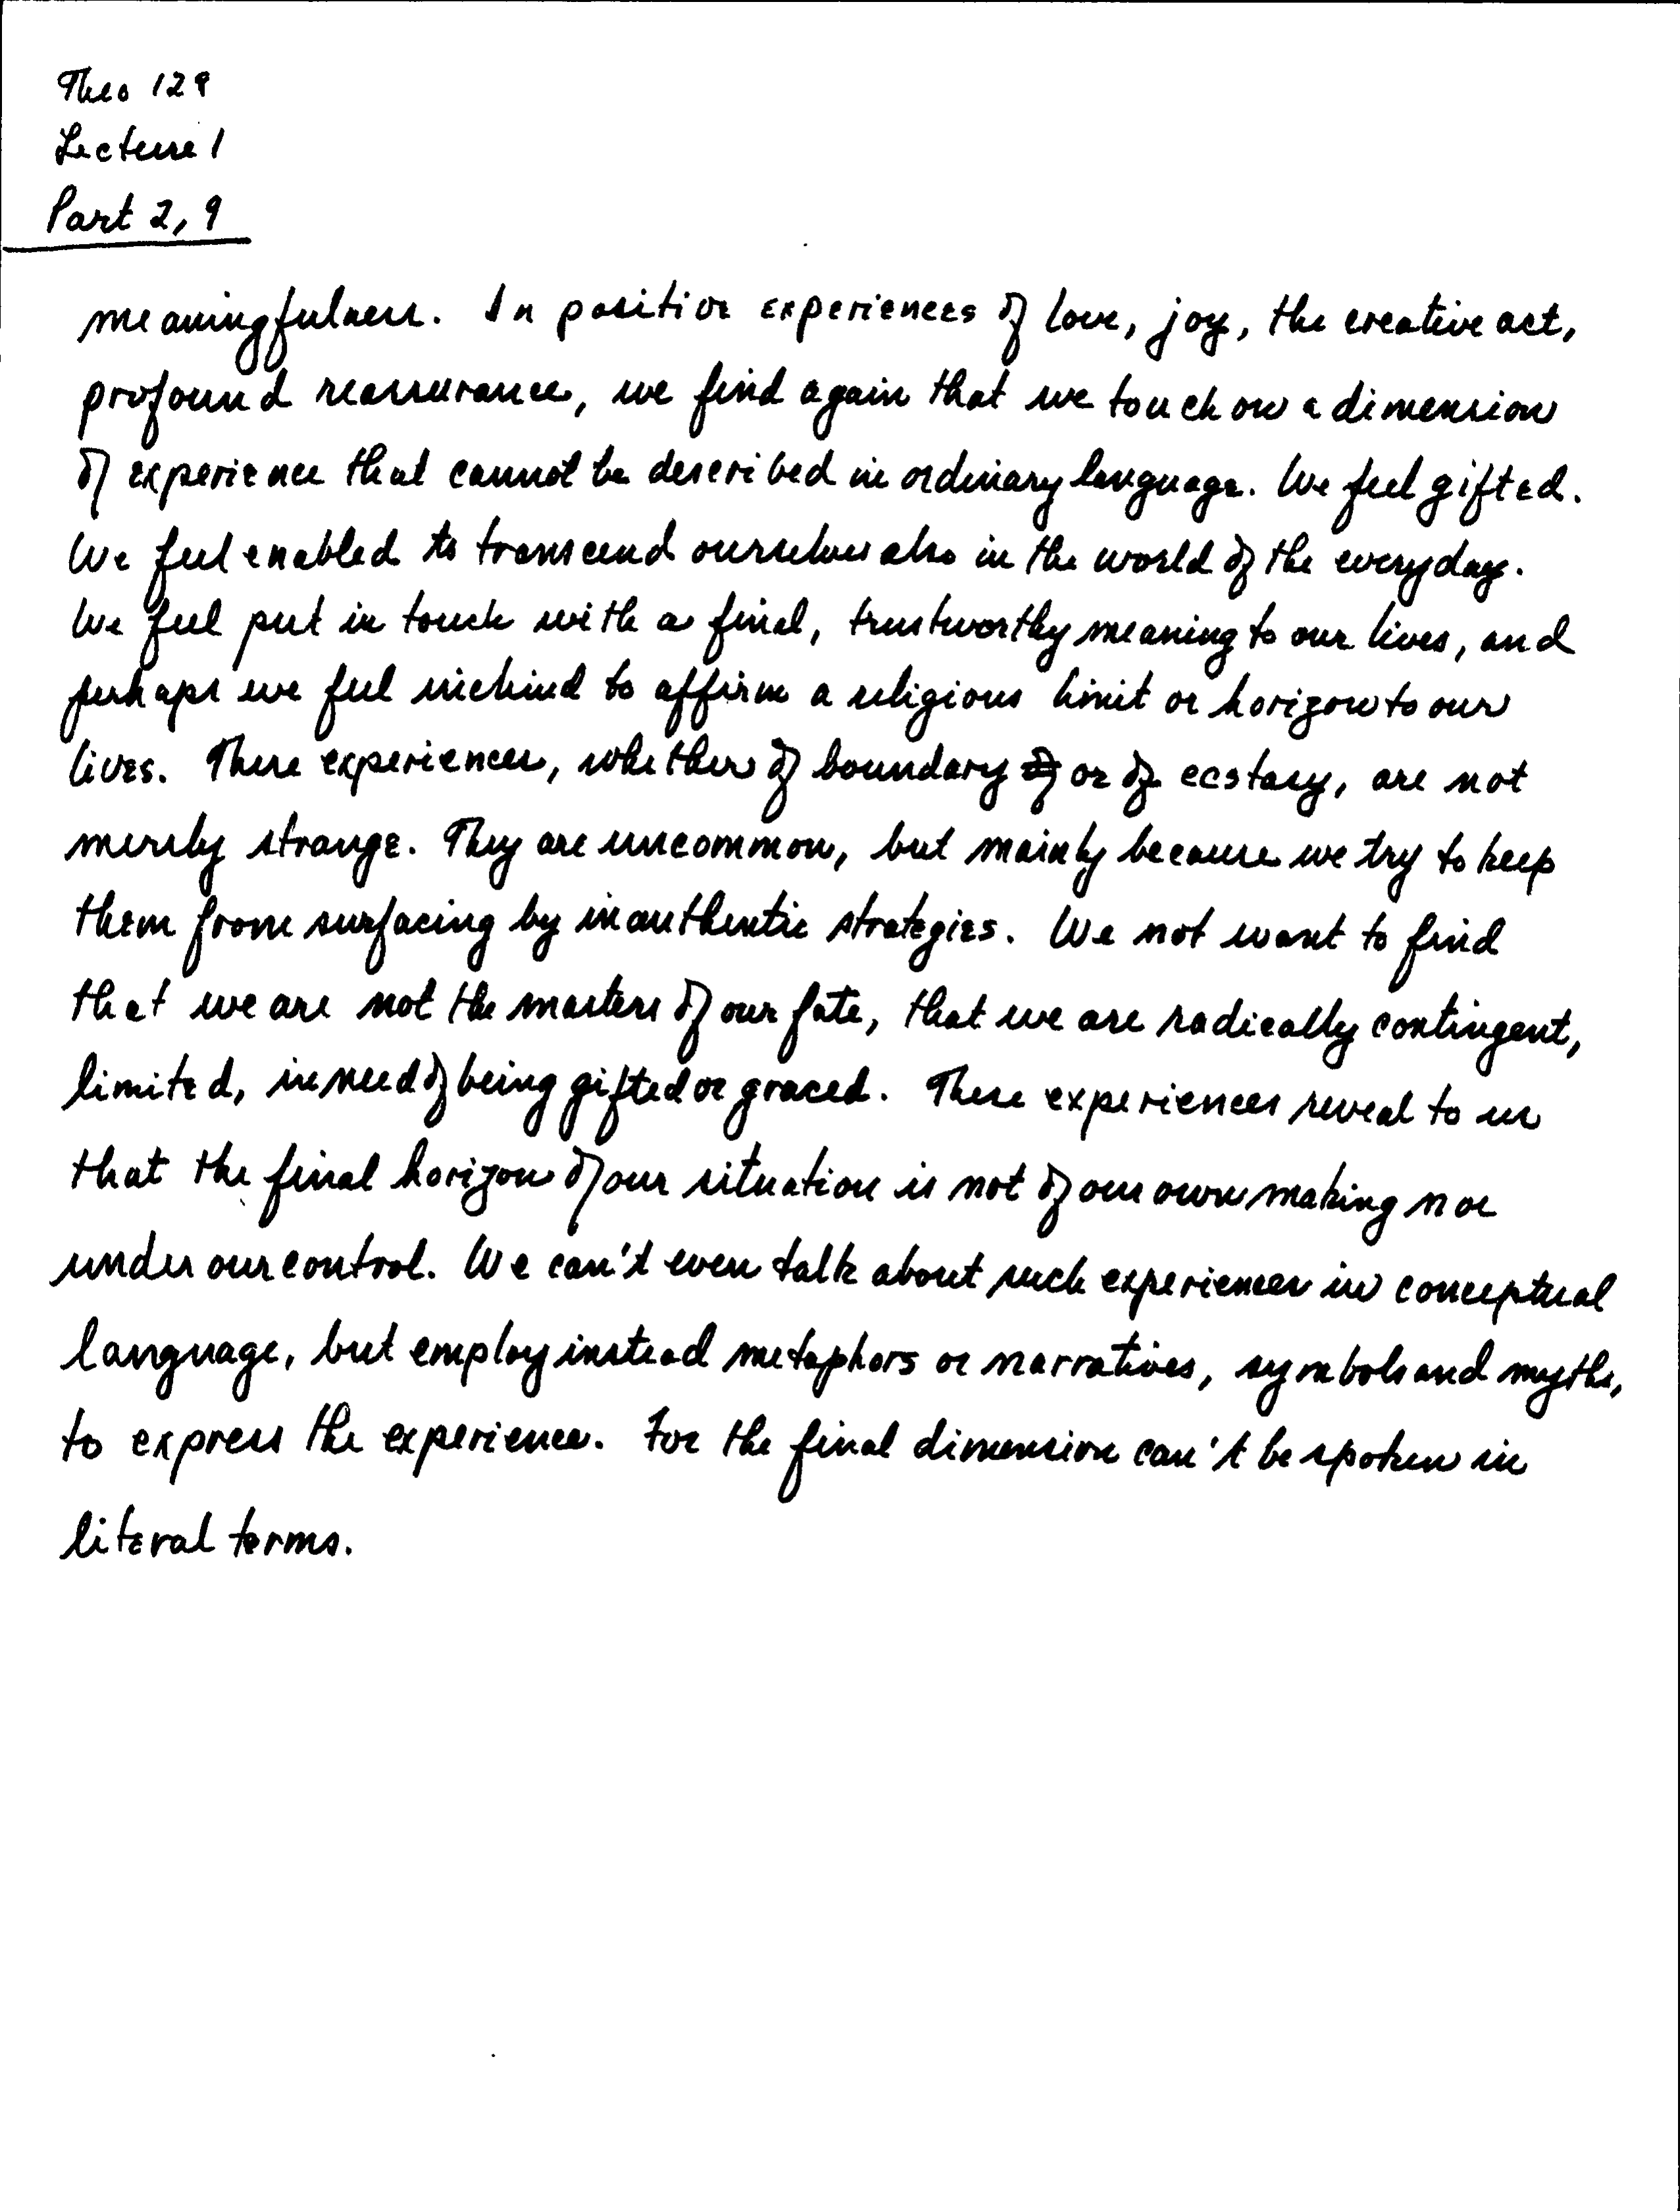 Theo 129
Lecture 1
Part 2, 9
meaningfulness. In positive experiences of love, joy, the creative act,
profound reassurance, we find again that we touch on a dimension
of experience that cannot be described in ordinary language. We feel gifted.
We feel enabled to transcend ourselves also in the world of the everyday.
We feel put in touch with a final, trustworthy meaning to our lives, and
perhaps we feel inclined to affirm a religious limit or horizon to our
lives. These experiences, whether of boundary or of ecstasy, are not
merely strange. They are uncommon, but mainly because we try to keep
them from surfacing by inauthentic strategies. We not want to find
that we are not the masters of our fate, that we are radically contingent,
limited, in need of being gifted or graced. These experiences reveal to us
that the final horizon of our situation is not of our own making nor
under our control. We can't even talk about such experiences in conceptual
language, but employ instead metaphors or narratives, symbols and myths,
to express the experience. For the final dimension can't be spoken in
literal terms.